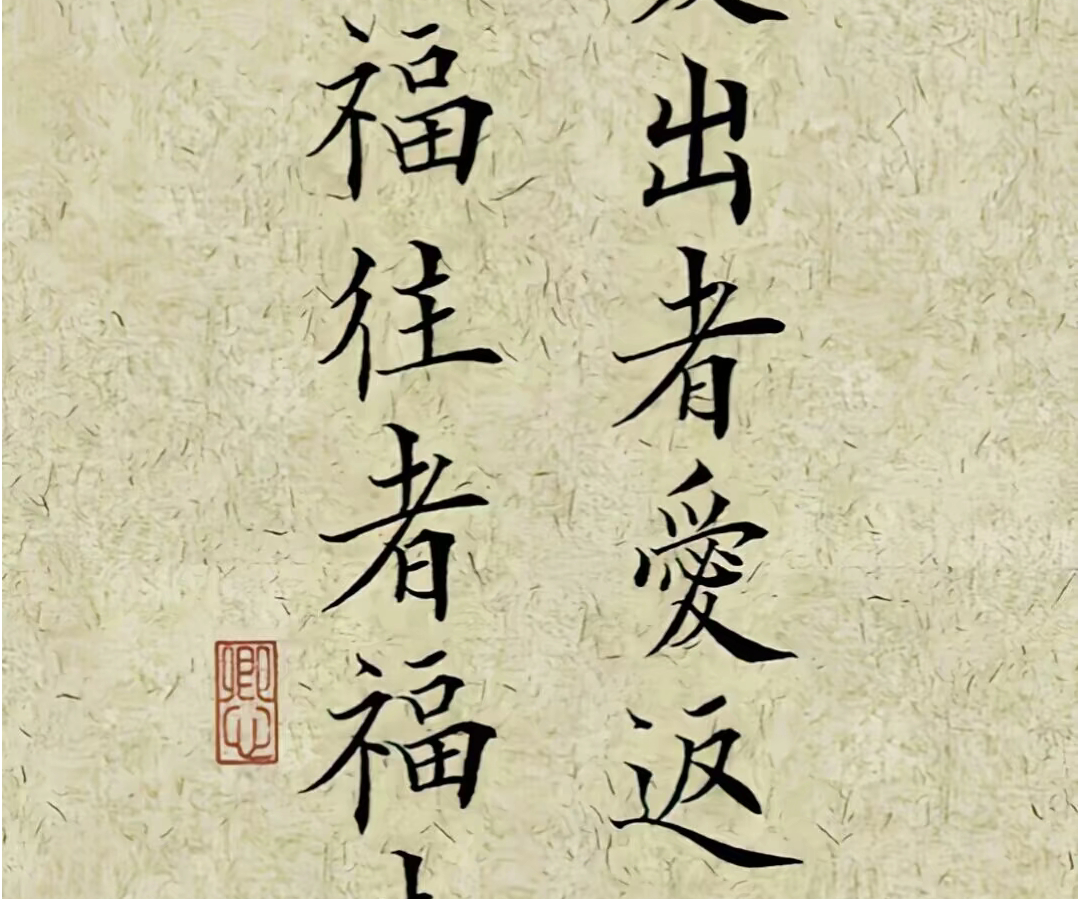 出者愛返
福往者福